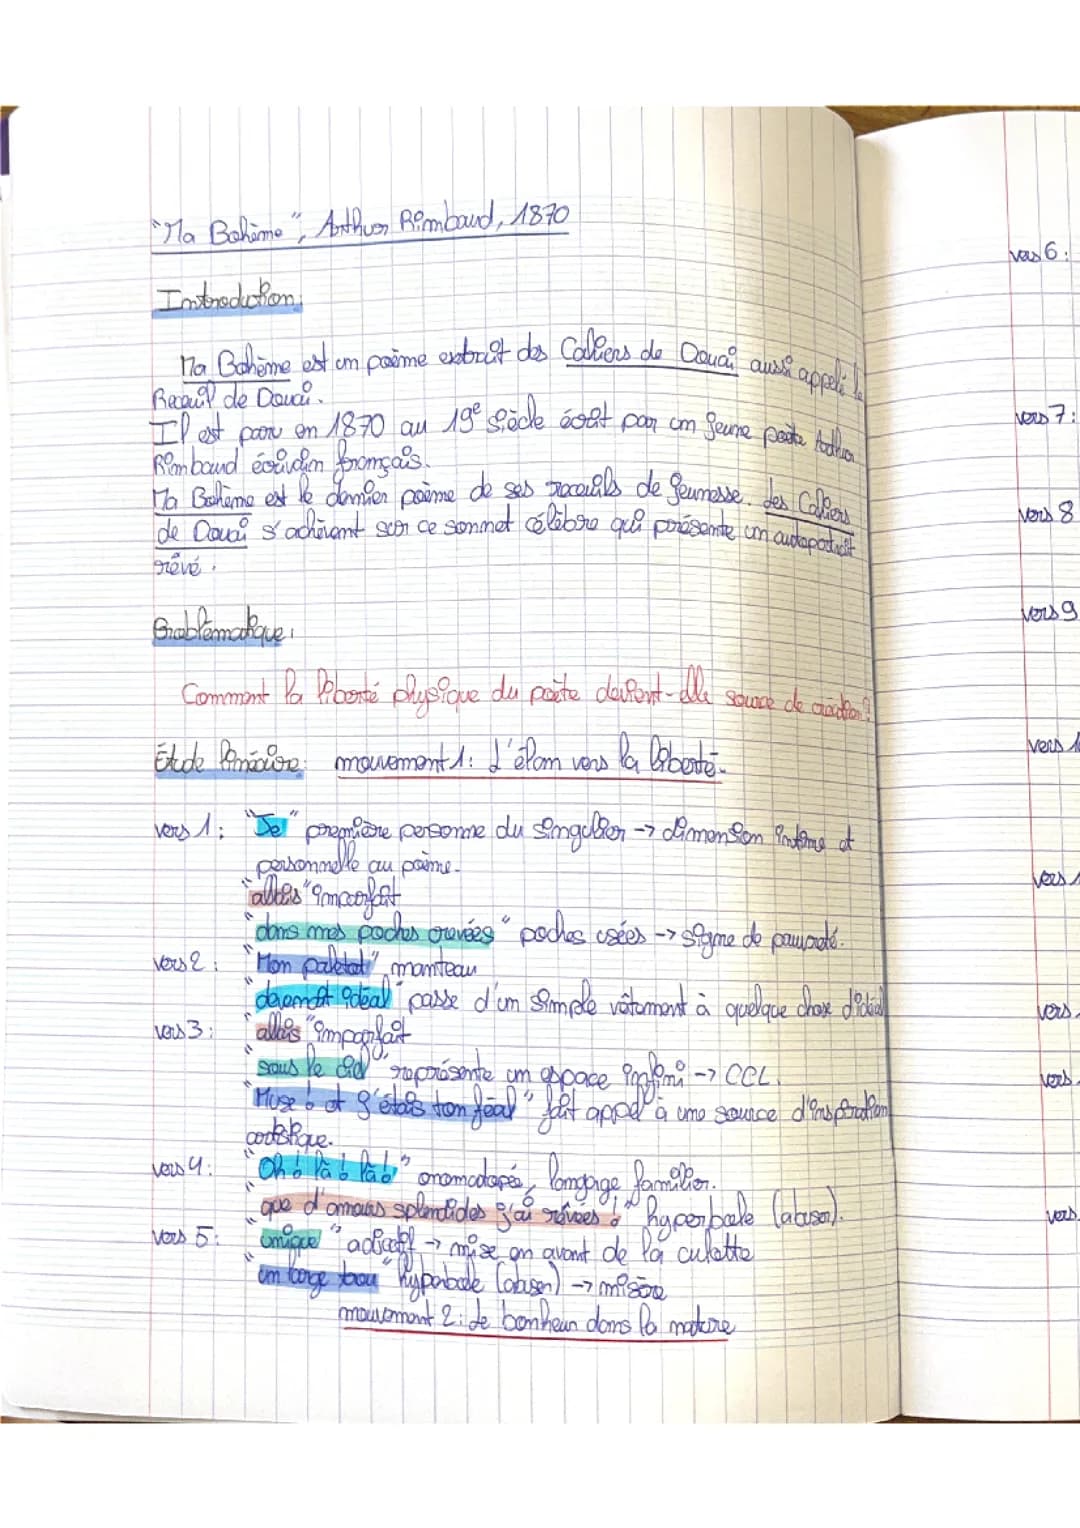 "Ma Bohème", Arthur Rimbaud, 1870
Introduction:
Ma Bohème est un poème extrait des Cahiers de Douai aussi appelé le
Recueil de Douai.
Il est paru en 1870 au 19e siècle écrit par un jeune poète Arthur
Rimbaud écrivain français.
Ma Bohème est le dernier poème de ses recueils de jeunesse. des Cahiers
de Douai s'achèvent sur ce sonnet célèbre qui présente un autoportrait
rêvé.
Problématique:
Comment la liberté physique du poète devient-elle source de création?
Étude linéaire: mouvement 1: L'élan vers la liberté.
vers 1: "Je" première personne du singulier -> dimension intime et
personnelle au poème.
"allais" imparfait
"dans mes poches crevées" poches usées -> signe de pauvreté.
vers 2: "Mon paletot" manteau
"devenait idéal" passe d'un simple vêtement à quelque chose d'idéal
vers 3: "allais" imparfait
"sous le ciel", représente un espace infini -> CCL.
"Muse! et j'étais ton féal" fait appel à une source d'inspiration
poétique.
vers 4: "Oh! là! là!" onomatopée, langage familier.
"que d'amours splendides j'ai rêvées!" hyperbole (abuser).
vers 5: "unique" adjectif -> mise en avant de la culotte
"un large trou" hyperbole (abuser) -> misère
mouvement 2: Le bonheur dans la nature
vers 6:
vers 7:
vers 8
vers 9
vers 1
vers 1
vers
vers
vers